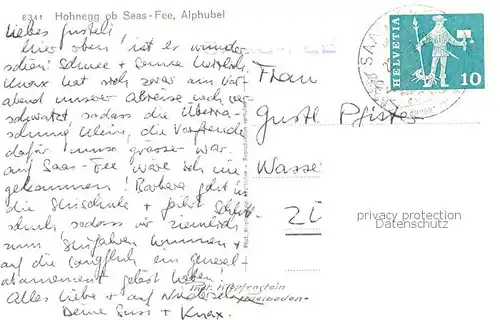 8341 Hohnegg ob Saas-Fee, Alphubel
Liebes Gusteli!
hier oben ist er wunder
schön! Schnee + Sonne herrlich.
Knax hat sich zwar am Vor
abend unserer Abreise noch ver
schwätzt, sodass die Überra
schung klein, die Vorfreude
dafür umso grösser war.
auf Saas-Fee wäre ich nie
gekommen! Barbara geht in
die Skischule +
sodass wir ziemlich
zum Skifahren kommen +
auf die Längfluh ein general-
abonnement gelöst haben!
Alles Liebe + auf Wiedersehn
Deine Susi + Knax.
SAAS-FEE
HELVETIA
10
Frau
Gustl Pfister
Wasse
privacy protection
Datenschutz